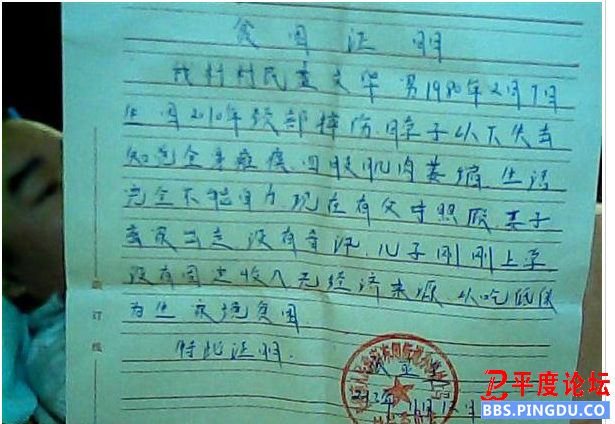 贫困证明
我村村民 文华 男1980年2月7日
生 因2010年颈部摔伤.脖子以下失去
知觉全身瘫痪四肢肌肉萎缩.生活
完全不能自力.现在有父母照顾妻子
离家出走没有音讯.儿子刚刚上学
没有固定收入无经济来源以吃低保
为生 家境贫困
特此证明.
装订线
平度论坛
BBS.PINGDU.CO